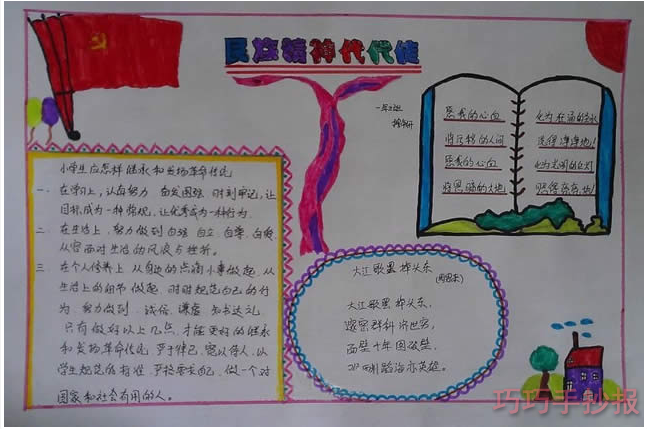 民族精神代代传
小学生应怎样继承和发扬革命传统
一、在学习上，认真努力、奋发图强、时刻牢记，让
目标成为一种常规，让优秀成为一种行为.
二、在生活上，努力做到自强、自立、自尊、自爱，
从容面对生活的风浪与挫折。
三、在个人修养上，从身边的点滴小事做起，从
生活上的细节做起，时时规范自己的行
为，努力做到：诚信、谦虚、知书达礼
只有做好以上几点，才能更好的继承
和发扬革命传统，严于律己，宽以待人，以
学生规范为标准，严格要求自己，做一个对
国家和社会有用的人。
愿我的心血
化为
将污秽的人间
洗得净净地！
愿我的心血
化为光明的红灯
将黑暗的大地
照得亮亮地！
大江歌罢掉头东
(周恩来)
大江歌罢掉头东，
邃密群科济世穷，
面壁十年图破壁，
难酬蹈海亦英雄。
巧巧手抄报